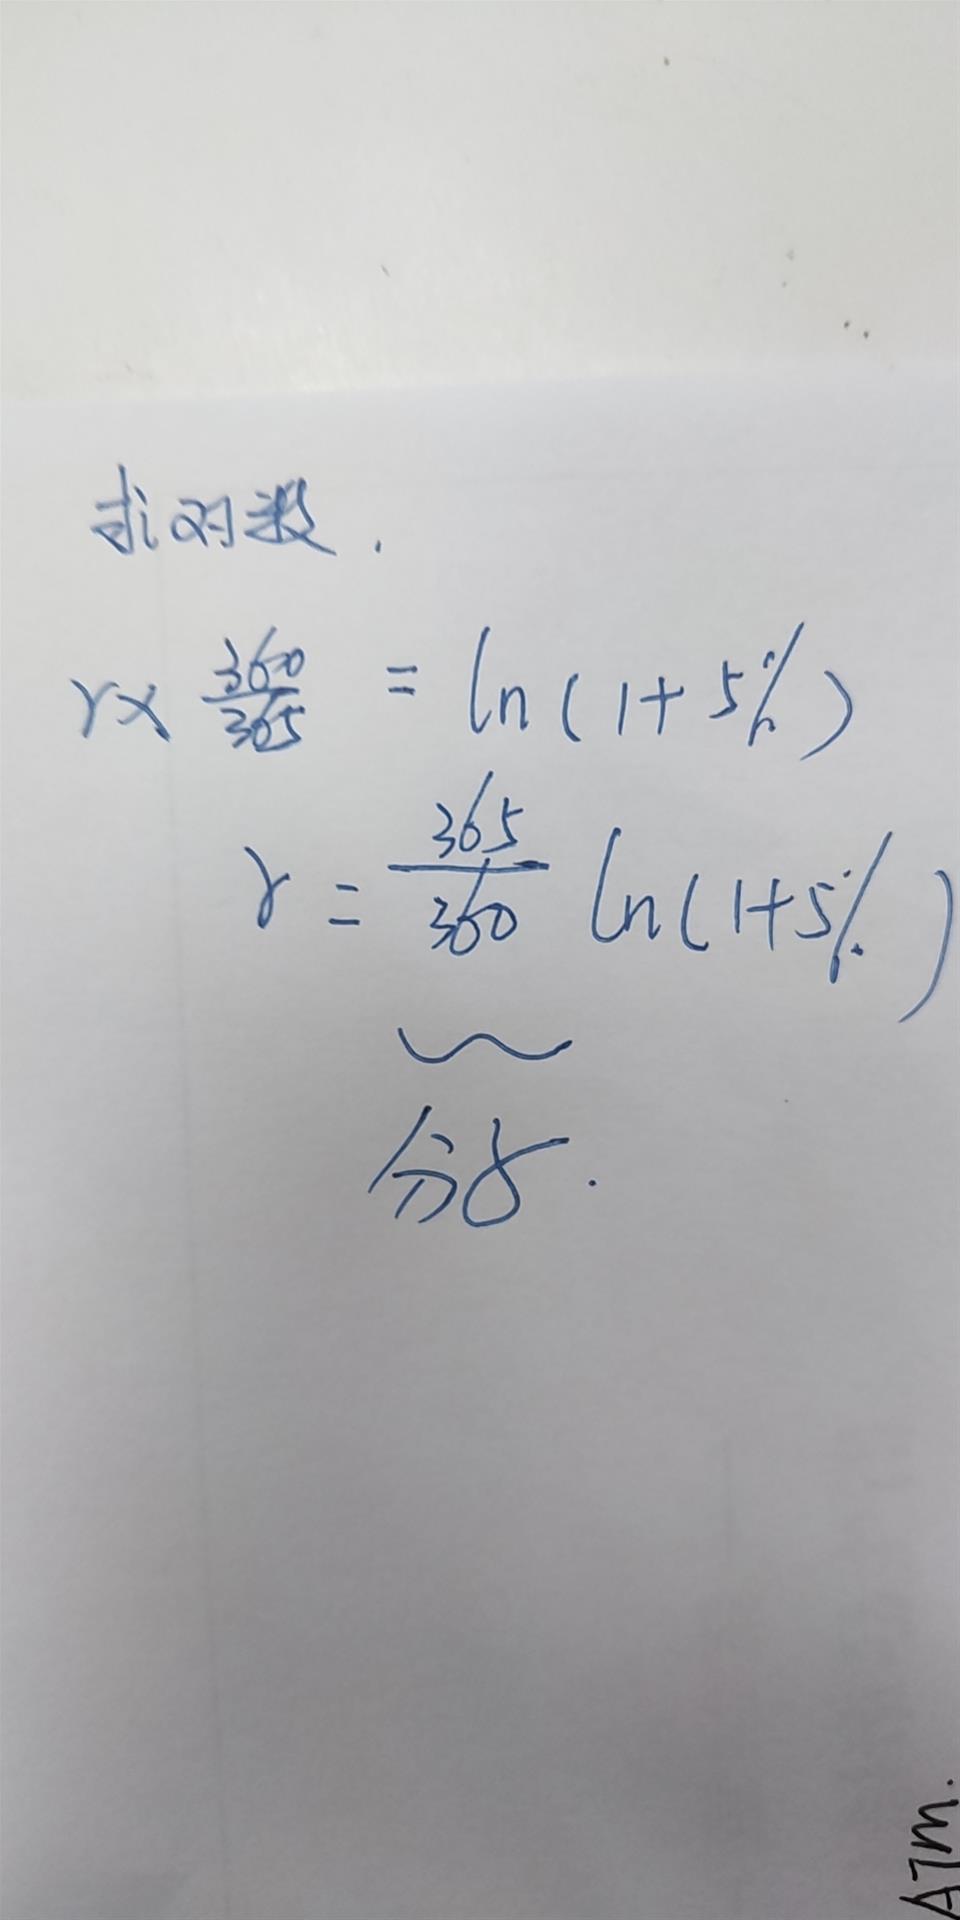 求对数.
r× 360/365 = ln(1+5%)
r = 365/360 ln(1+5%)
分
ATM.